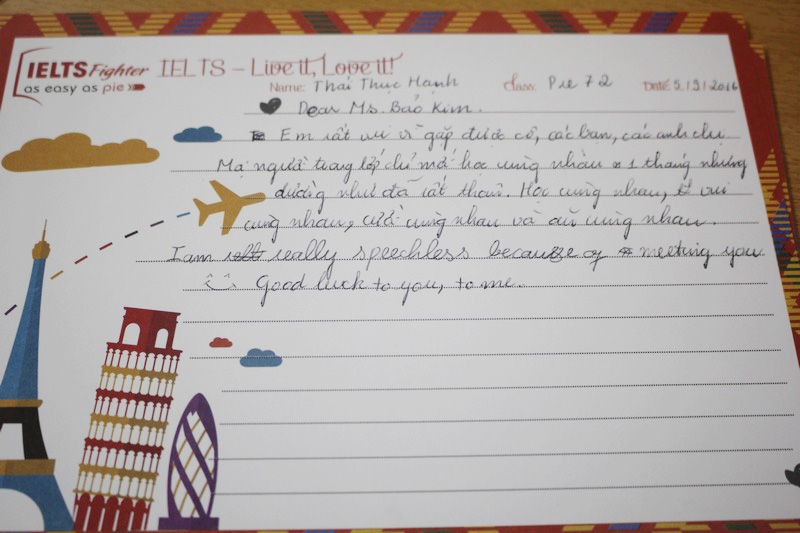 IELTS Fighter IELTS – Live it, Love it!
as easy as pie
Name: Thái Thục Hạnh Class: Pre 72 Date: 5/9/2016
Dear Ms. Bảo Kim.
Em rất vui vì gặp được cô, các bạn, các anh chị
Mọi người trong lớp chỉ mới học cùng nhau 1 tháng nhưng
dường như đã rất thân. Học cùng nhau, vui
cùng nhau, cười cùng nhau và ăn cùng nhau.
I am really speechless because of meeting you
Good luck to you, to me.